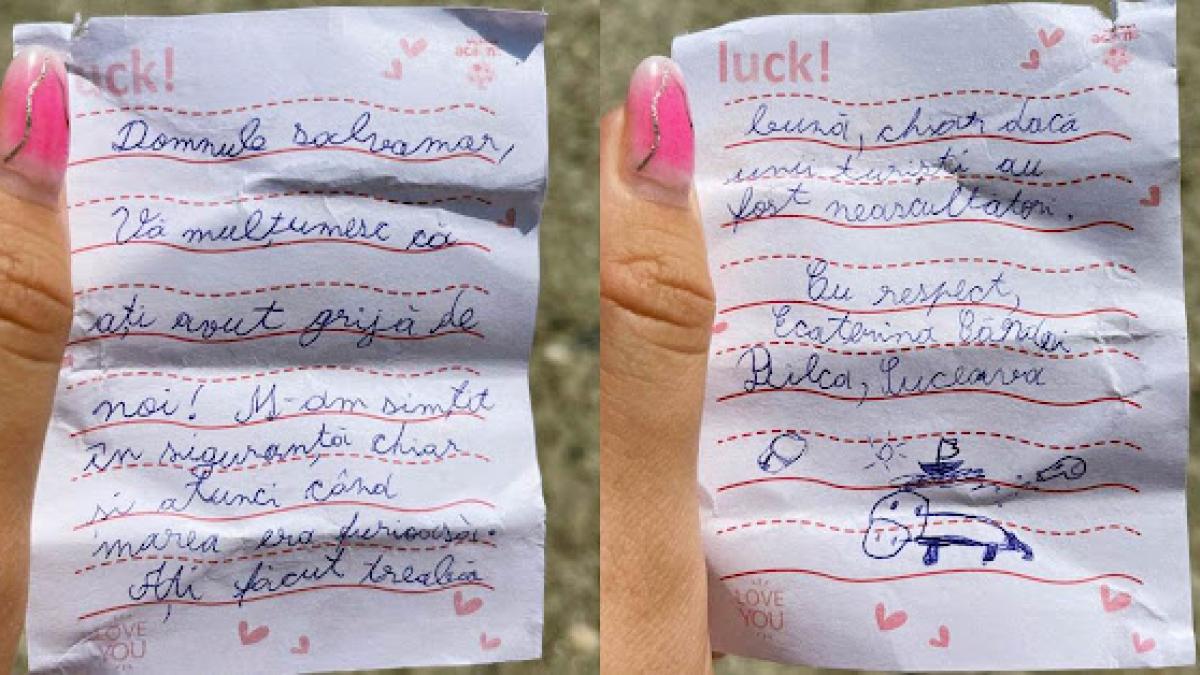 uck!
Domnule salvamar,
Vă mulțumesc că
ați avut grijă de
noi! M-am simțit
în siguranță chiar
si atunci când
marea era furioasă.
Ați făcut treaba
LOVE
YOU
luck!
bună, chiar dacă
unii turiști au
fost neascultatori.
Cu respect,
Ecaterina
Pilca, Suceava
LOVE
YOU